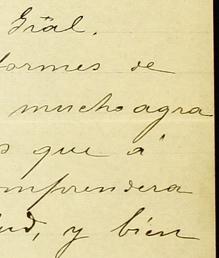 Gral.
formes de
mucho agra
s que á
omprendera
ud, y bien